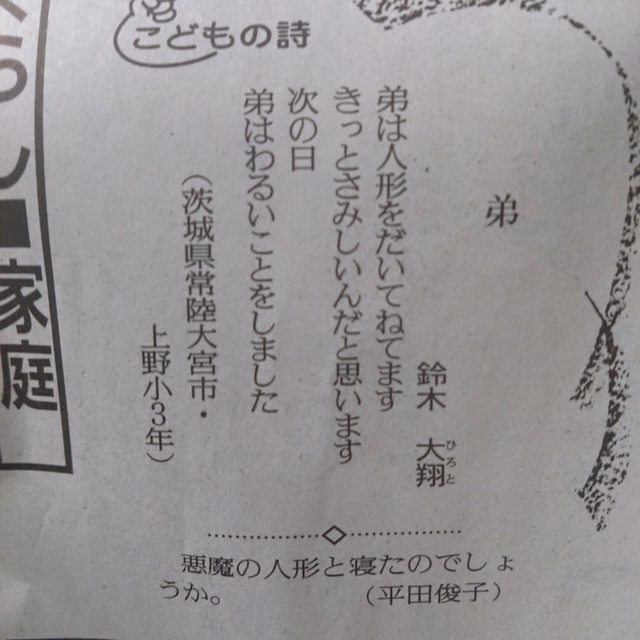 こどもの詩
弟
鈴木 大翔
ひろと
弟は人形をだいてねてます
きっとさみしいんだと思います
次の日
弟はわるいことをしました
（茨城県常陸大宮市・
上野小3年）
悪魔の人形と寝たのでしょ
うか。 （平田俊子）
し■家庭